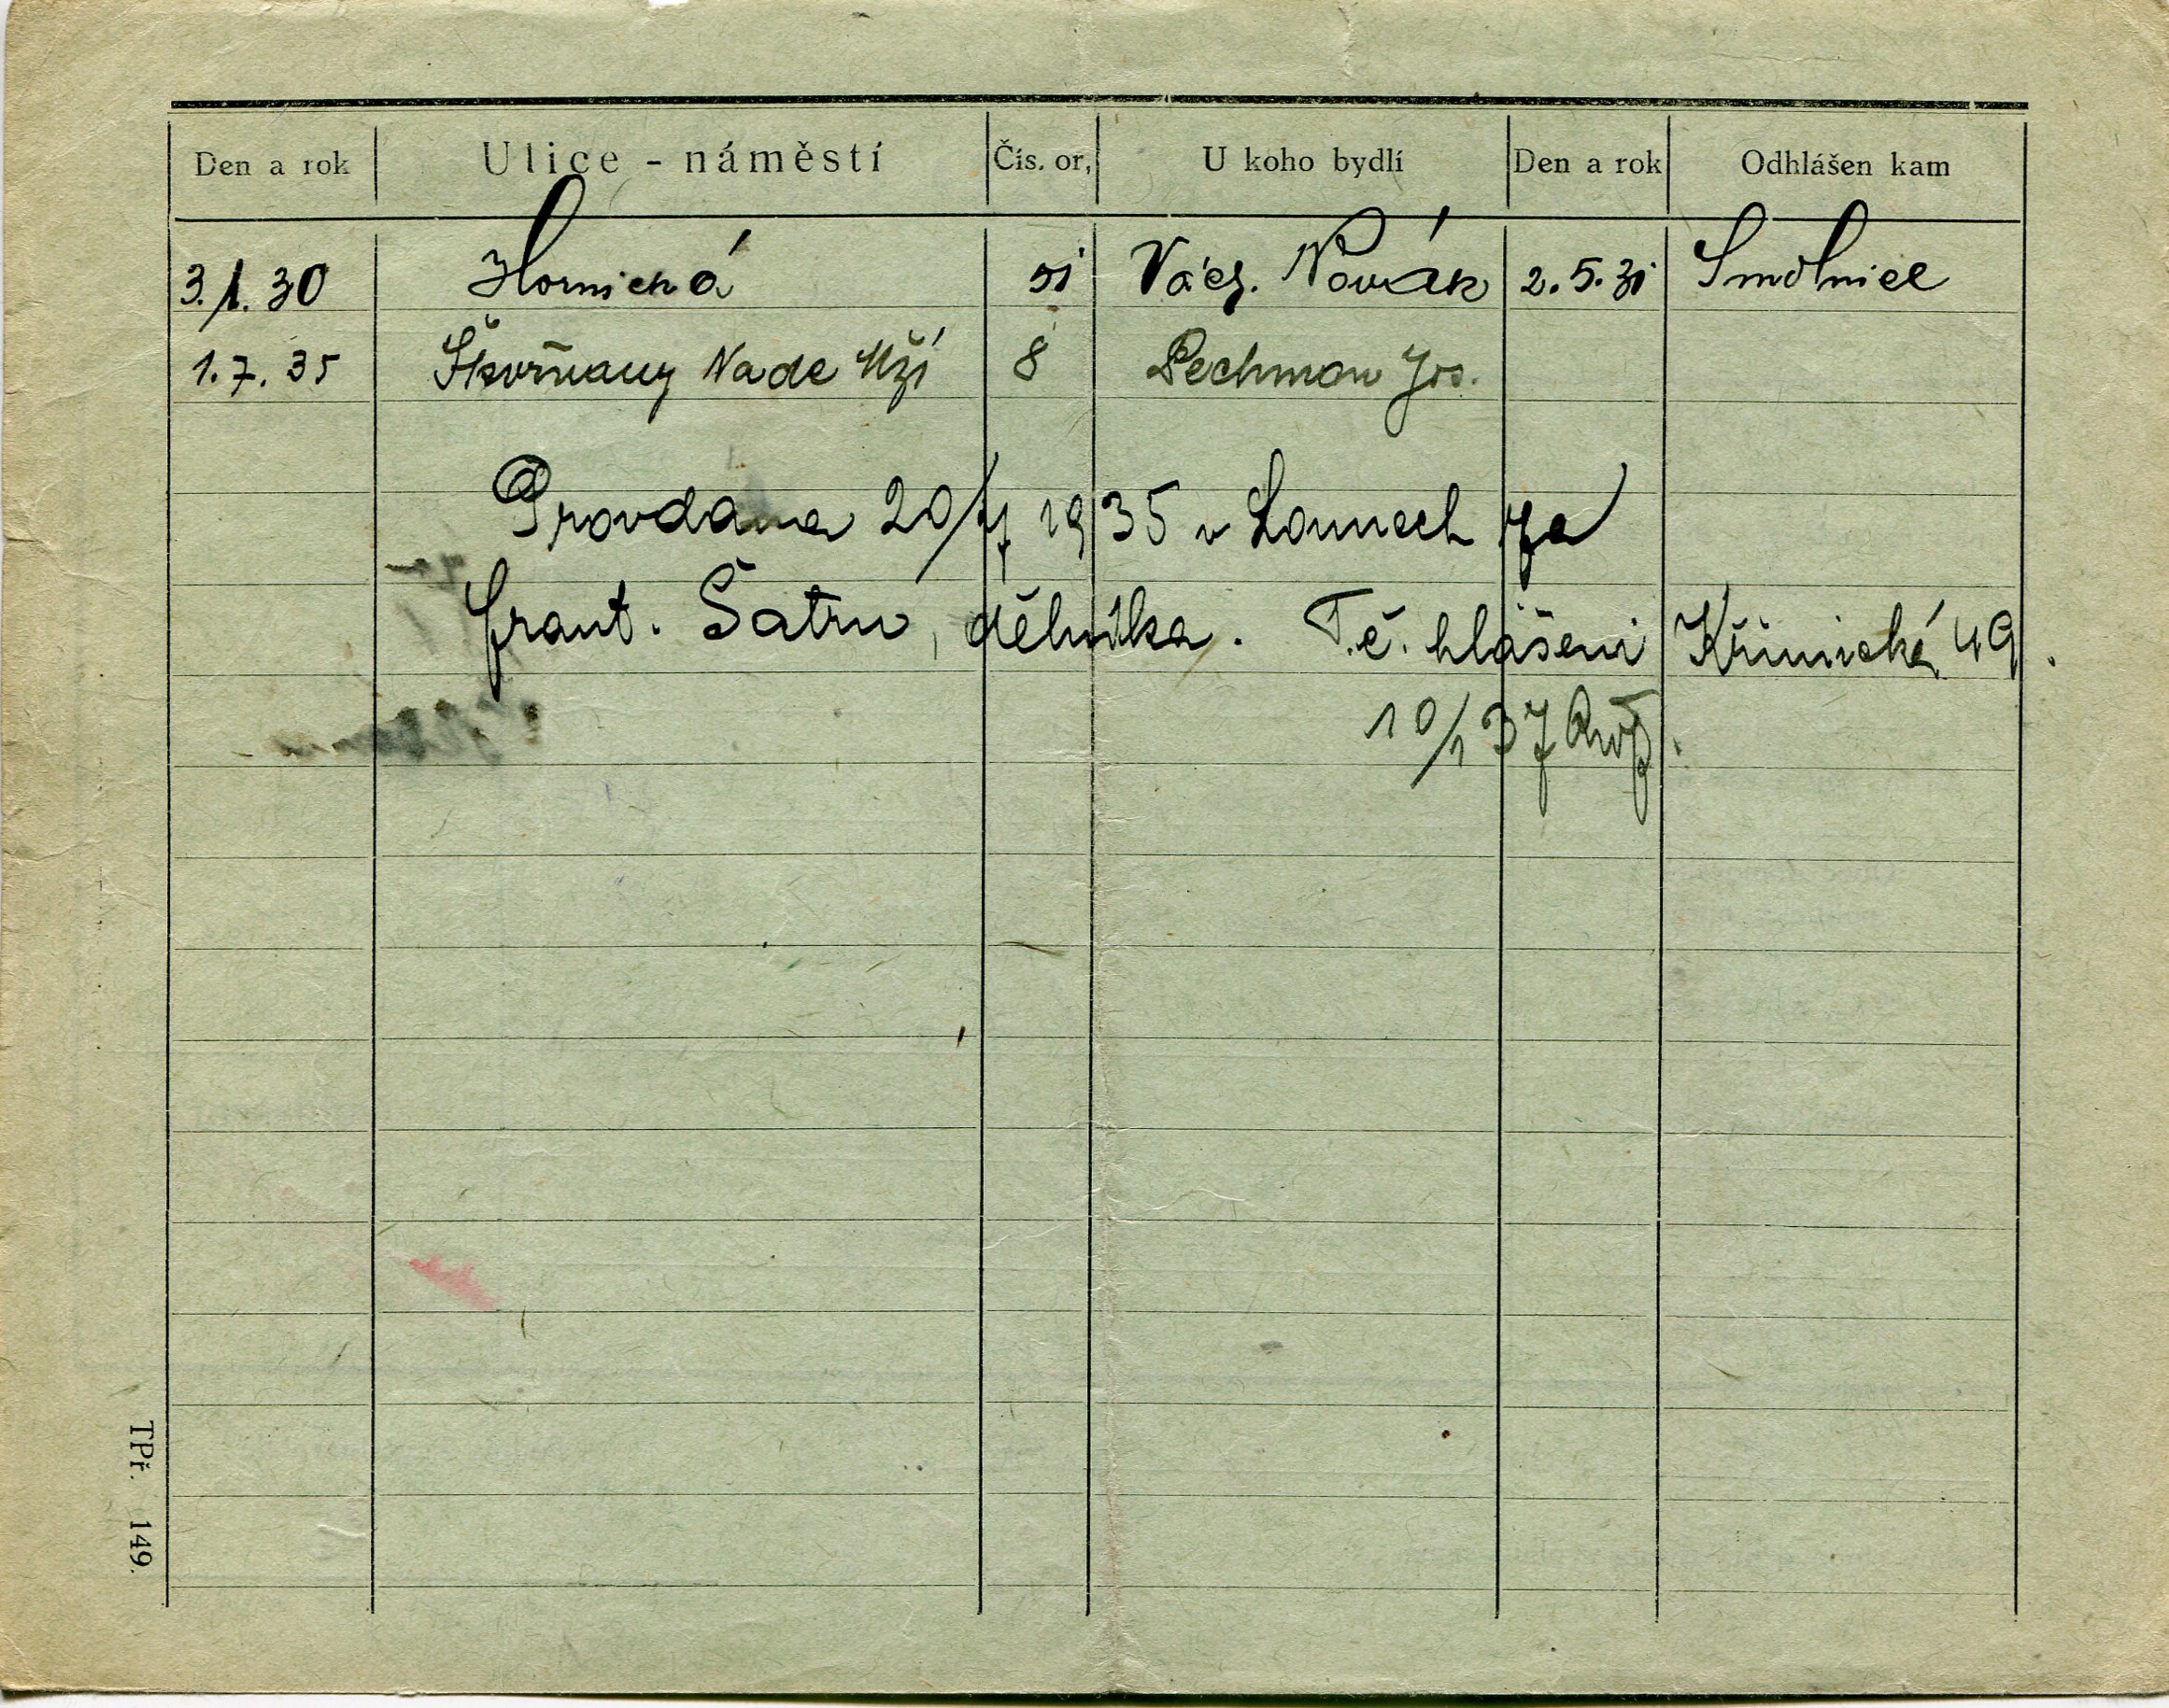 Den a rok Ulice - náměstí Čís. or. U koho bydlí Den a rok Odhlášen kam
3./1. 30 Hornická 51 Václ. Novák 2. 5. 31 Smolnice
1. 7. 35 Škvrňany Nade Mží 8 Pechman Jos.
Provdána 20/7 1935 v Lounech za
Frant. Šatru, dělníka. T. č. hlášeni Křimická 49.
10/1 37
TPř. 149.